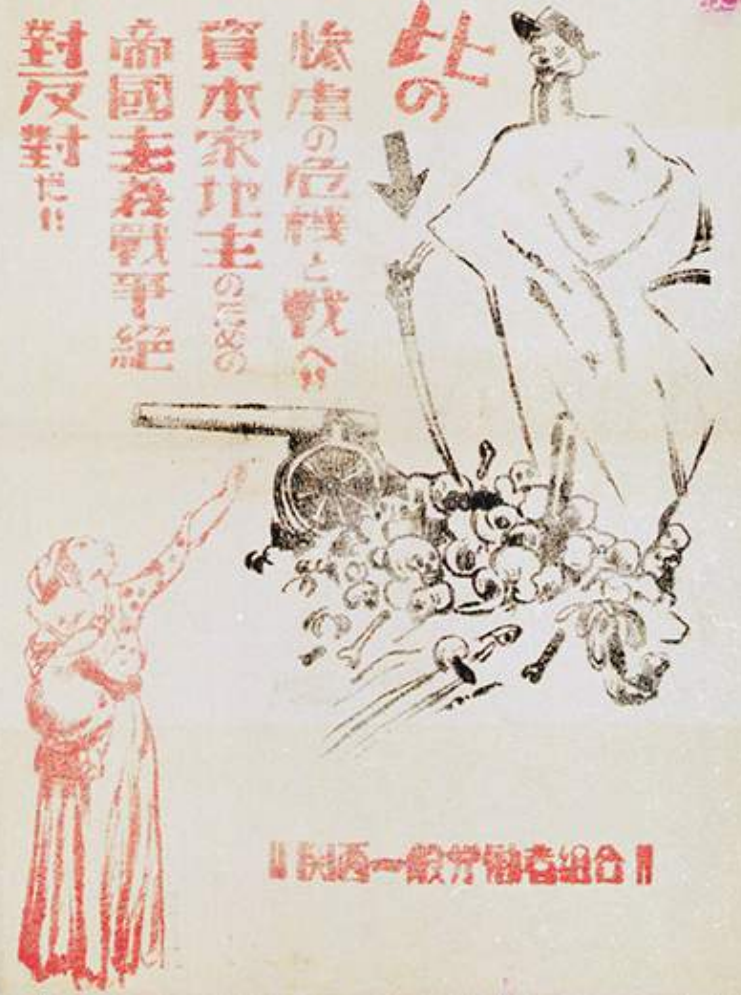 此の
惨虐の危機と戦へ!!
資本家地主のための
帝國主義戰爭絶
對反對だ!!
!!関西一般労働者組合!!